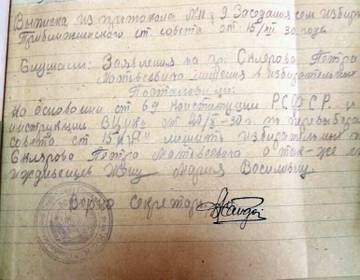 Выписка из протокола № 9 Заседания сем избир
Приближненского ст совета от 15/XII 30 года
Слушали: Заявления на гр. Склярова Петра
Матвеевича лишения в избирательном
Постановили:
На основании ст 69 Конституции РСФСР и
инструкции ВЦИКа от 20/X-30 г. по перевыборам
совета ст 15 лишить избирательных
Склярова Петра Матвеевича а так-же
иждивенцев Жену Мария Василовну
Верно Секретарь